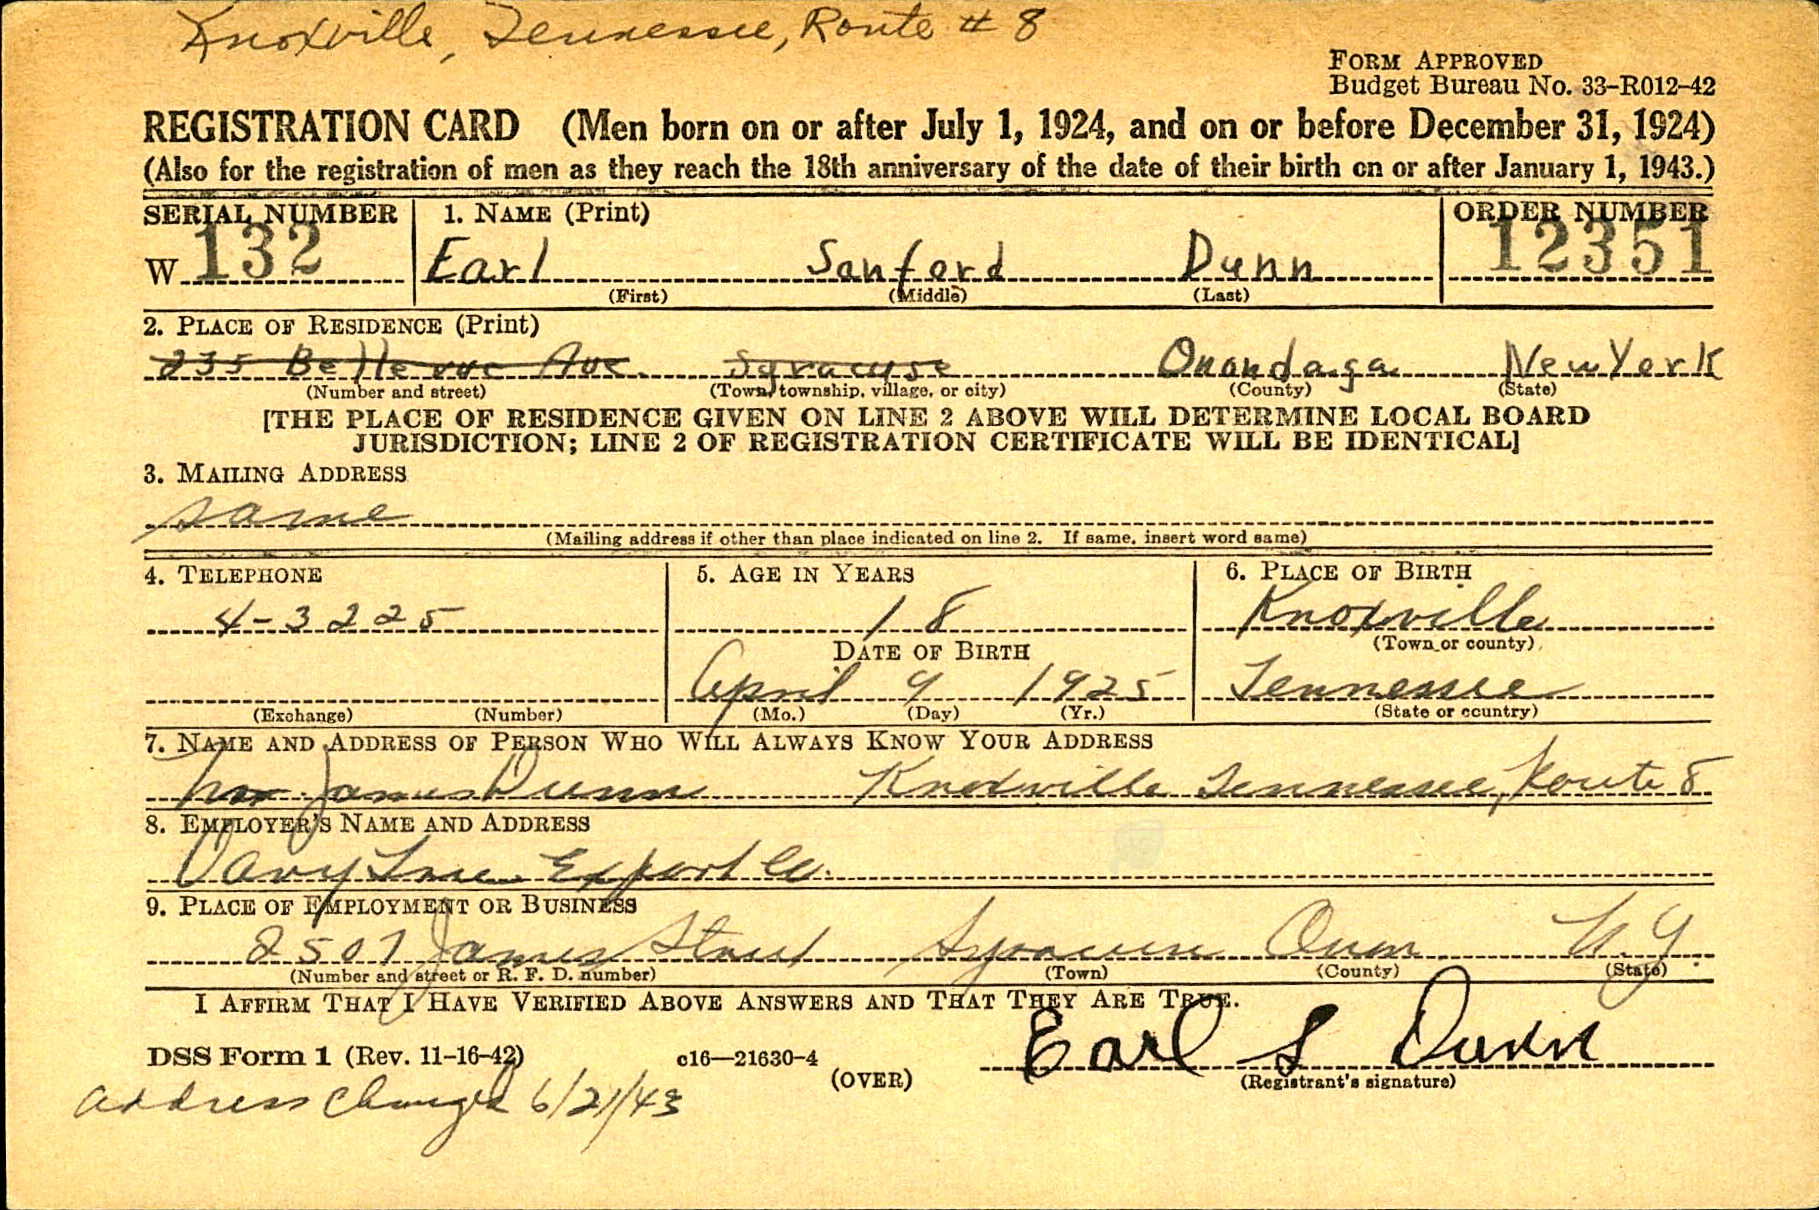 Knoxville, Tennessee, Route # 8
FORM APPROVED
Budget Bureau No. 33–R012–42
REGISTRATION CARD (Men born on or after July 1, 1924, and on or before December 31, 1924)
(Also for the registration of men as they reach the 18th anniversary of the date of their birth on or after January 1, 1943.)
SERIAL NUMBER 1. NAME (Print) ORDER NUMBER
W 132 Earl Sanford Dunn 12351
(First) (Middle) (Last)
2. PLACE OF RESIDENCE (Print)
235 Bellevue Ave. Syracuse Onandaga New York
(Number and street) (Town, township, village, or city) (County) (State)
[THE PLACE OF RESIDENCE GIVEN ON LINE 2 ABOVE WILL DETERMINE LOCAL BOARD
JURISDICTION; LINE 2 OF REGISTRATION CERTIFICATE WILL BE IDENTICAL]
3. MAILING ADDRESS
same
(Mailing address if other than place indicated on line 2. If same, insert word same)
4. TELEPHONE 5. AGE IN YEARS 6. PLACE OF BIRTH
4-3225 18 Knoxville
DATE OF BIRTH (Town or county)
April 9 1925 Tennessee
(Exchange) (Number) (Mo.) (Day) (Yr.) (State or country)
7. NAME AND ADDRESS OF PERSON WHO WILL ALWAYS KNOW YOUR ADDRESS
James Dunn Knoxville Tennessee, Route 8
8. EMPLOYER'S NAME AND ADDRESS
Davy Tree Expert Co.
9. PLACE OF EMPLOYMENT OR BUSINESS
2507 James Street Syracuse Onon N.Y.
(Number and street or R. F. D. number) (Town) (County) (State)
I AFFIRM THAT I HAVE VERIFIED ABOVE ANSWERS AND THAT THEY ARE TRUE.
Earl S Dunn
DSS Form 1 (Rev. 11-16-42) c16—21630-4 (OVER) (Registrant's signature)
Address Changed 6/21/43